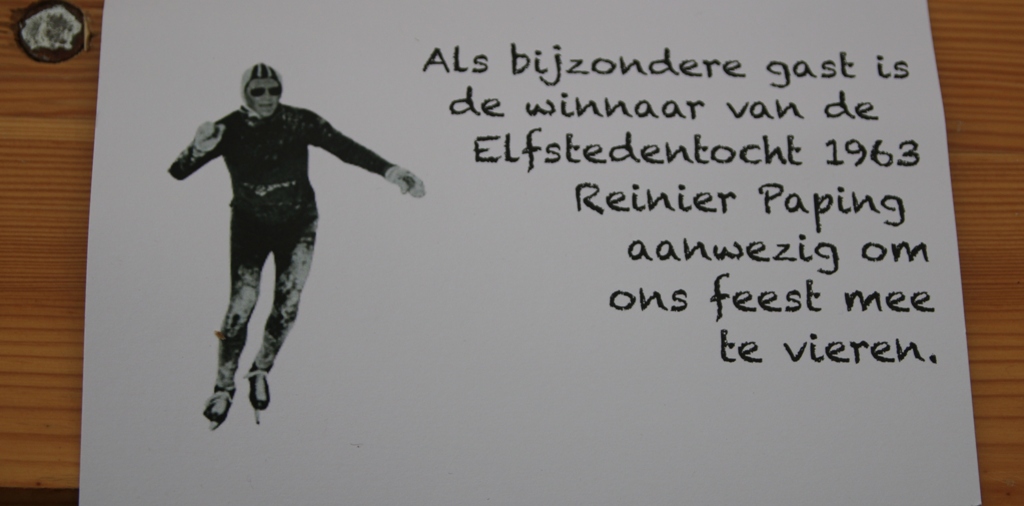 Als bijzondere gast is
de winnaar van de
Elfstedentocht 1963
Reinier Paping
aanwezig om
ons feest mee
te vieren.